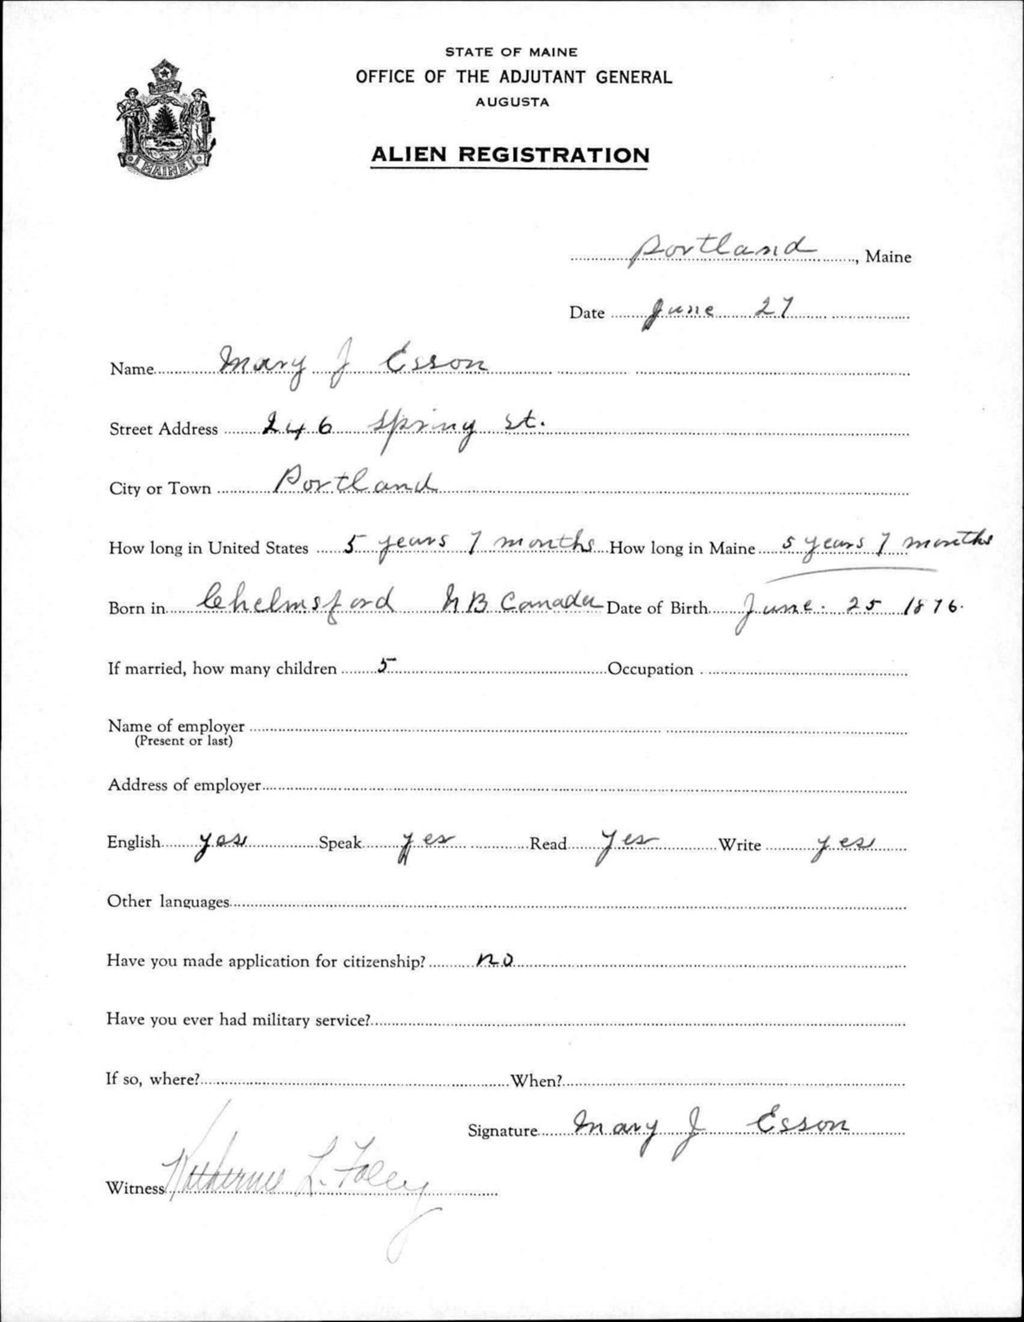 STATE OF MAINE
OFFICE OF THE ADJUTANT GENERAL
AUGUSTA
ALIEN REGISTRATION
MAINE
Portland, Maine
Date June 27
Name Mary J Esson
Street Address 246 Spring St.
City or Town Portland
How long in United States 5 years 7 months How long in Maine 5 years 7 months
Born in Chelmsford NB Canada Date of Birth June 25 1876.
If married, how many children 5 Occupation
Name of employer
(Present or last)
Address of employer
English yes Speak yes Read Yes Write yes
Other languages
Have you made application for citizenship? no
Have you ever had military service?
If so, where? When?
Signature Mary J Esson
Witness Katherine L. Foley